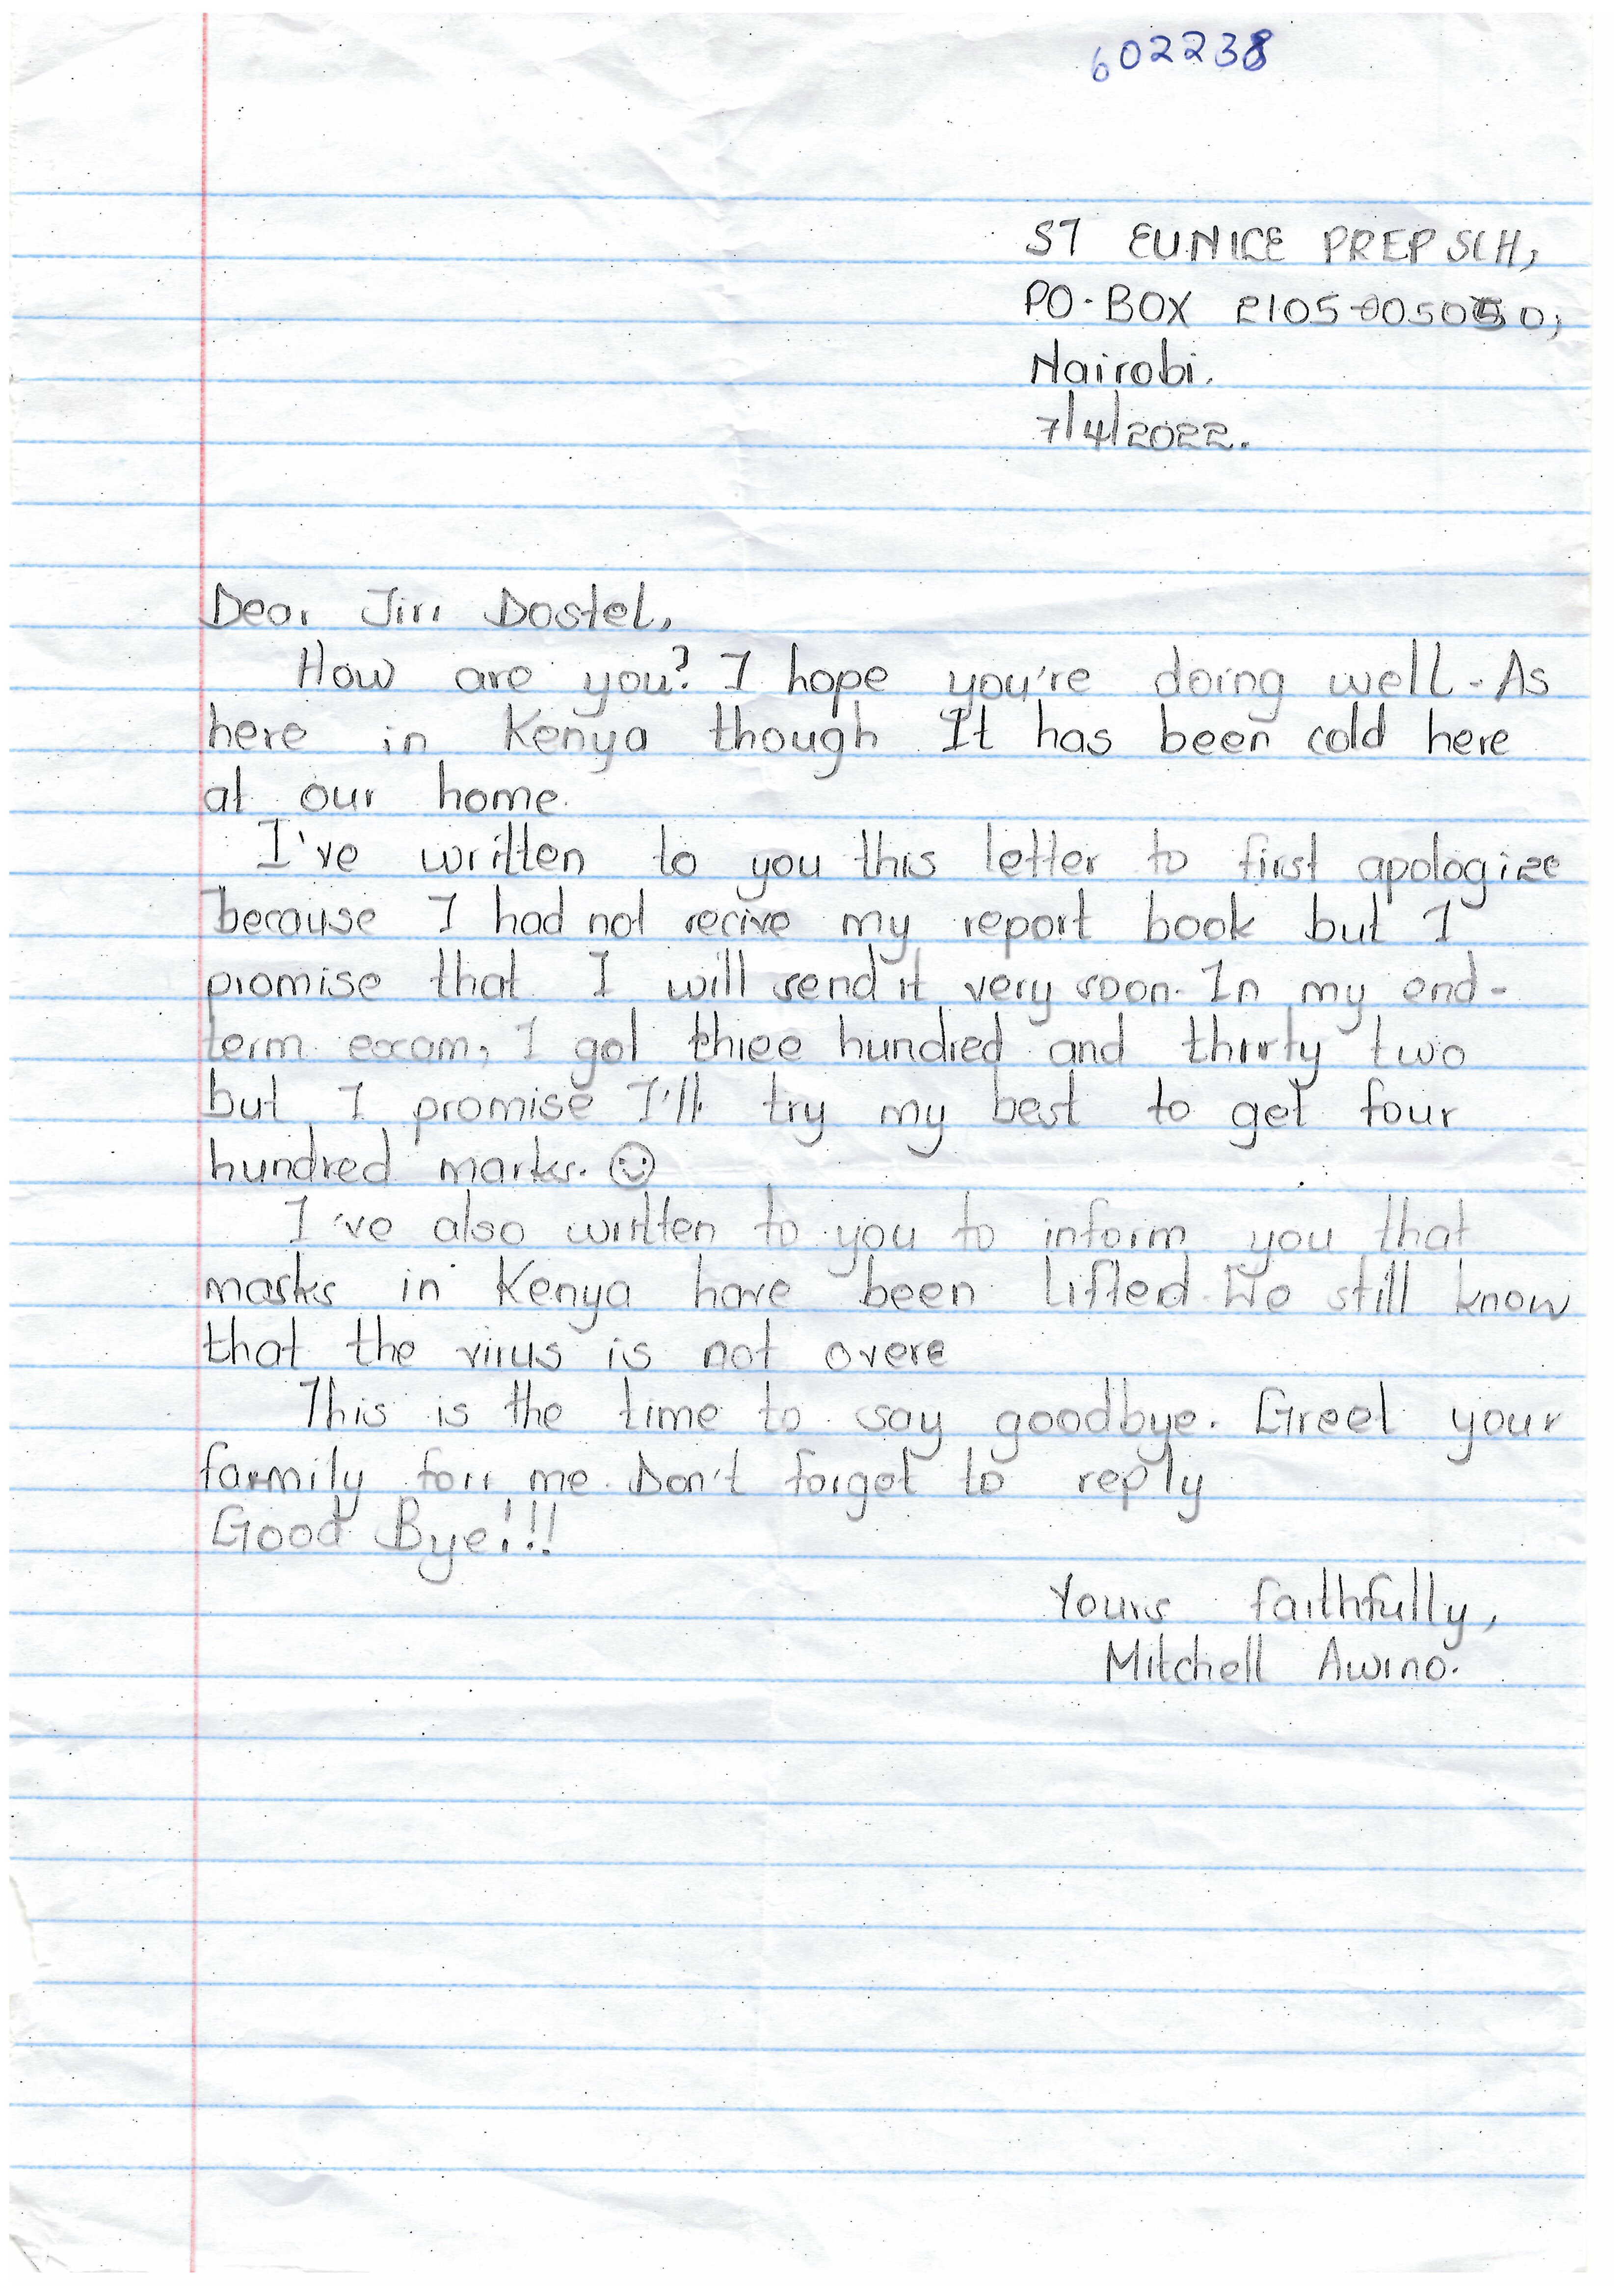 602238
ST EUNICE PREP SCH,
PO.BOX 2105-005050,
Nairobi.
7/4/2022.
Dear Jiri Dostel,
How are you? I hope you're doing well. As
here in Kenya though It has been cold here
at our home.
I've written to you this letter to first apologize
because I had not recive my report book but I
promise that I will send it very soon. In my end-
term exam, I got three hundred and thirty two
but I promise I'll try my best to get four
hundred marks. ☺
I've also written to you to inform you that
masks in Kenya have been lifted. We still know
that the virus is not overe
This is the time to say goodbye. Greet your
farmily forr me. Don't forget to reply
Good Bye!!!
Yours faithfully,
Mitchell Awino.